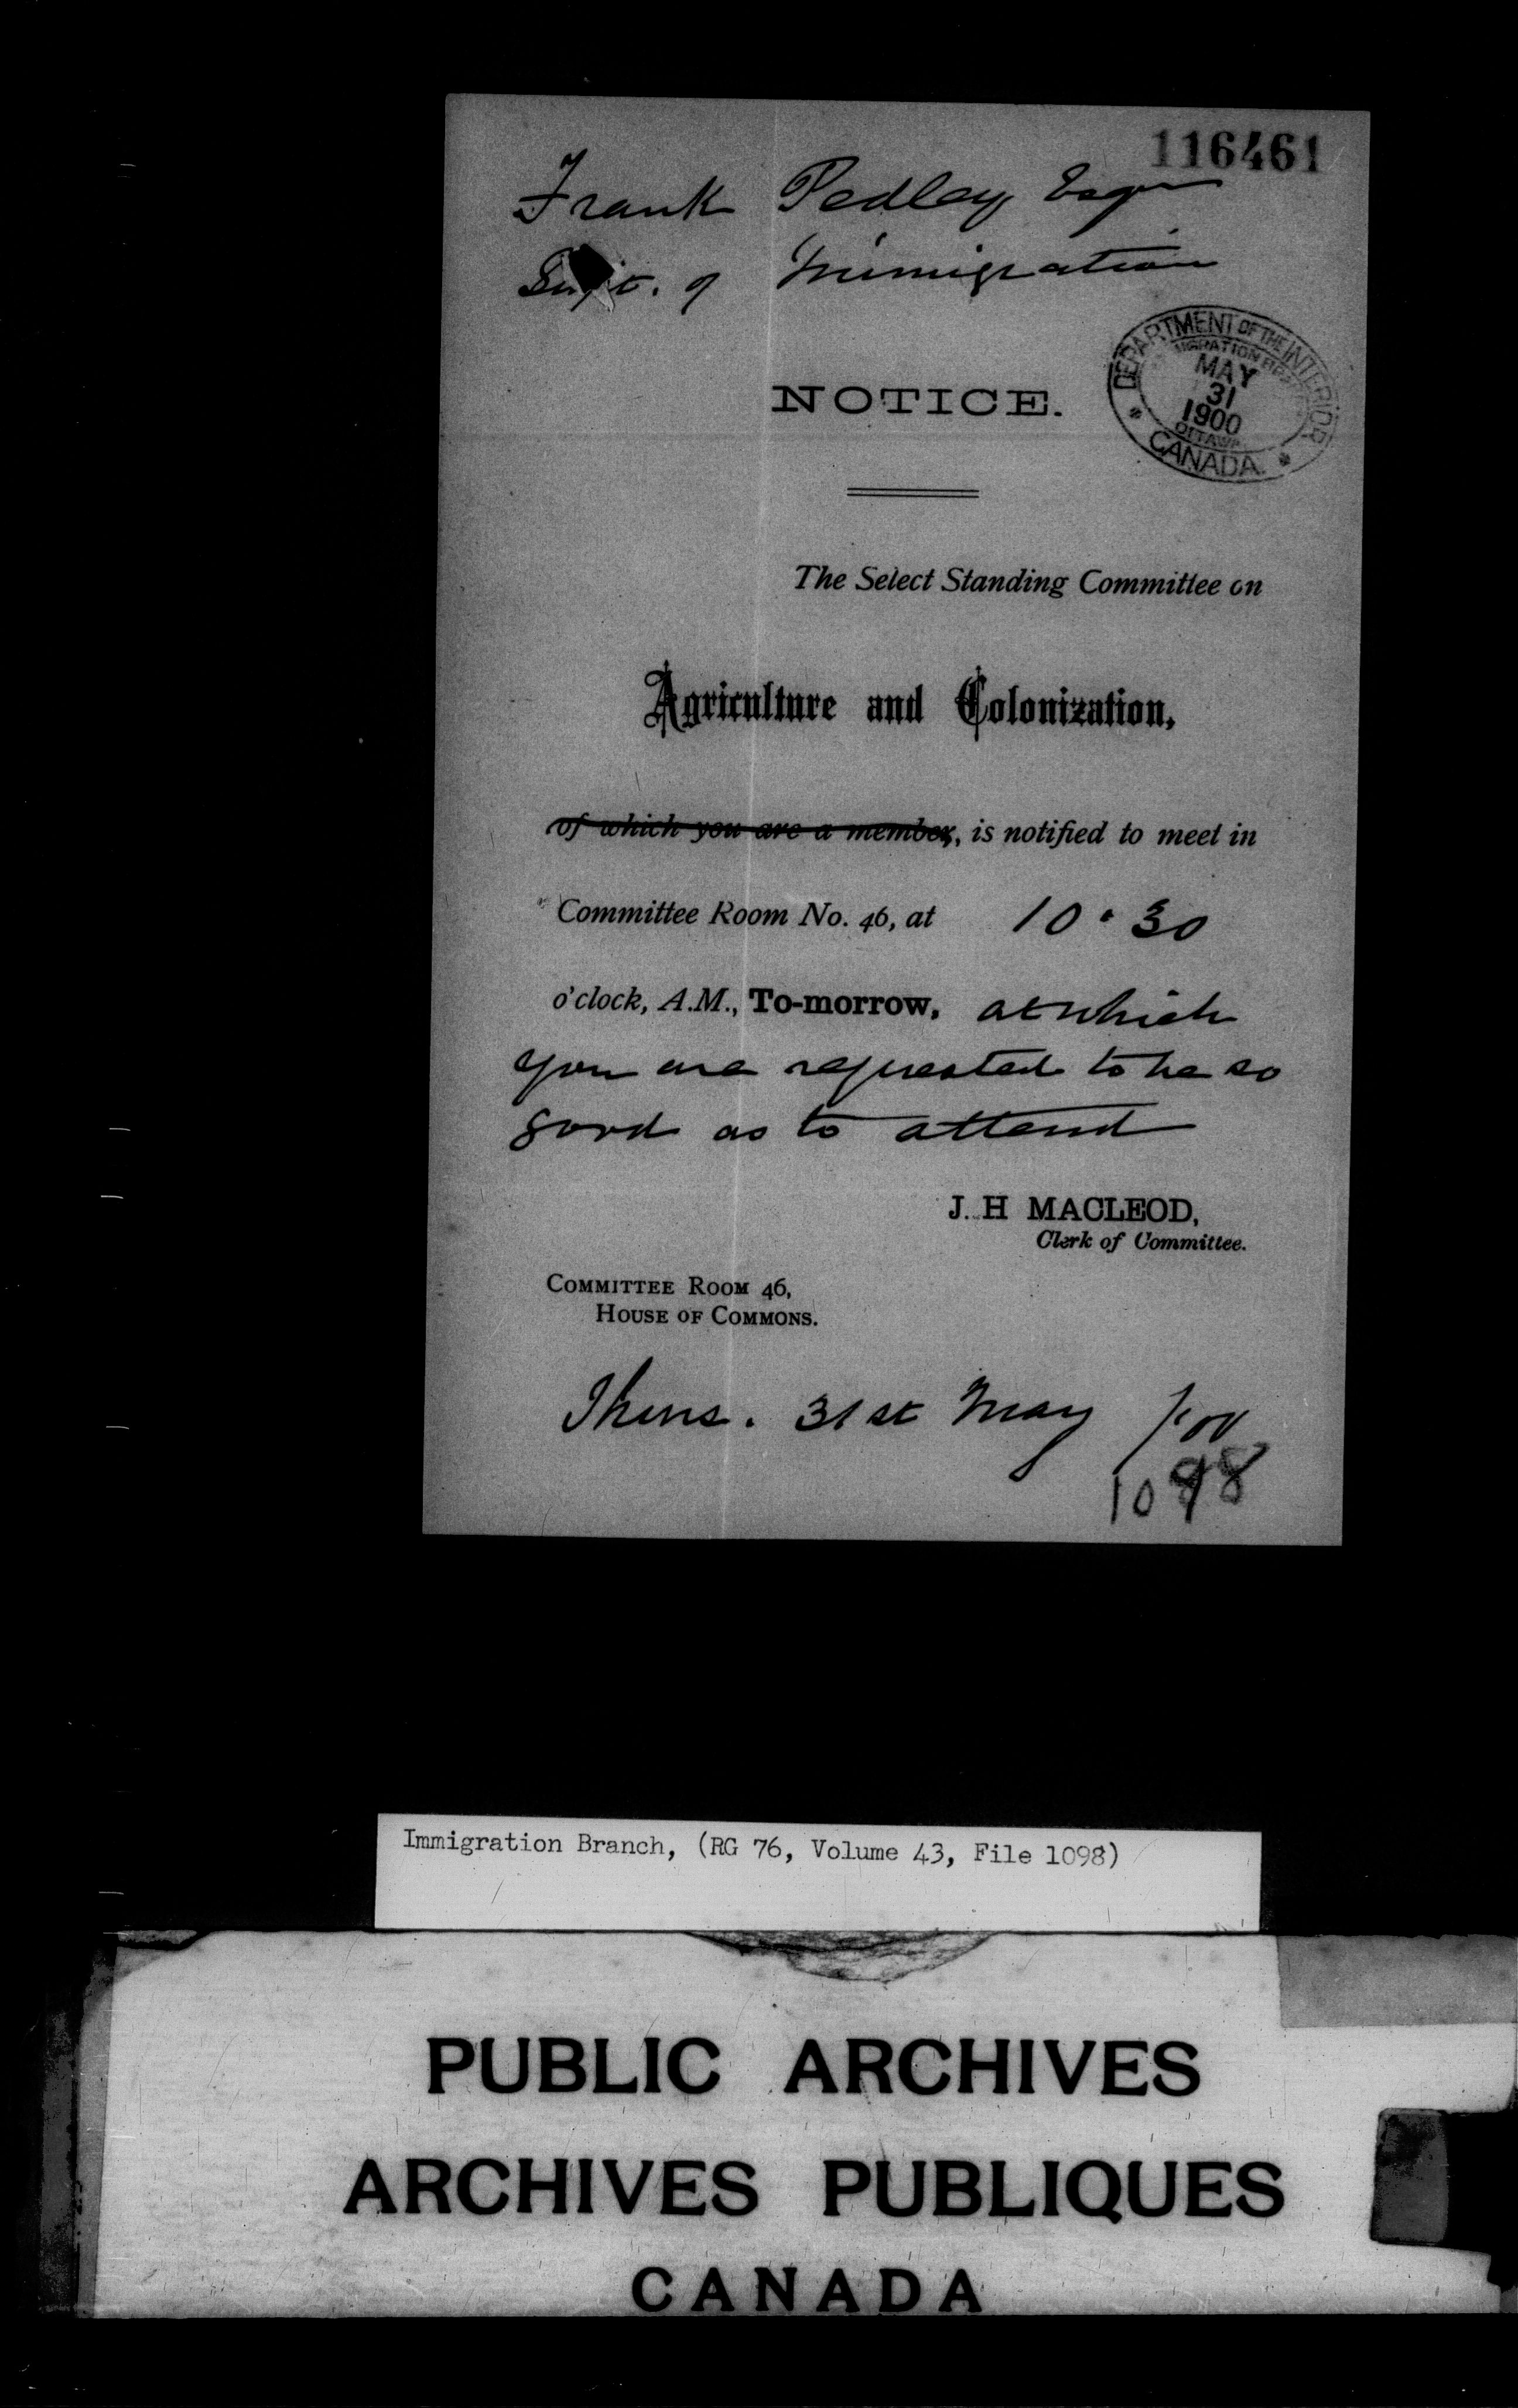 116461
Frank Pedley Esqr
Supt. of Immigration
DEPARTMENT OF THE INTERIOR
MAY
31
1900
OTTAWA
CANADA
NOTICE.
The Select Standing Committee on
Agriculture and Colonization,
of which you are a member, is notified to meet in
Committee Room No. 46, at 10.30
o'clock, A.M., To-morrow, at which
you are requested to be so
good as to attend
J. H MACLEOD,
Clerk of Committee.
COMMITTEE ROOM 46,
HOUSE OF COMMONS.
Thurs. 31st May /00
1098
Immigration Branch, (RG 76, Volume 43, File 1098)
PUBLIC ARCHIVES
ARCHIVES PUBLIQUES
CANADA